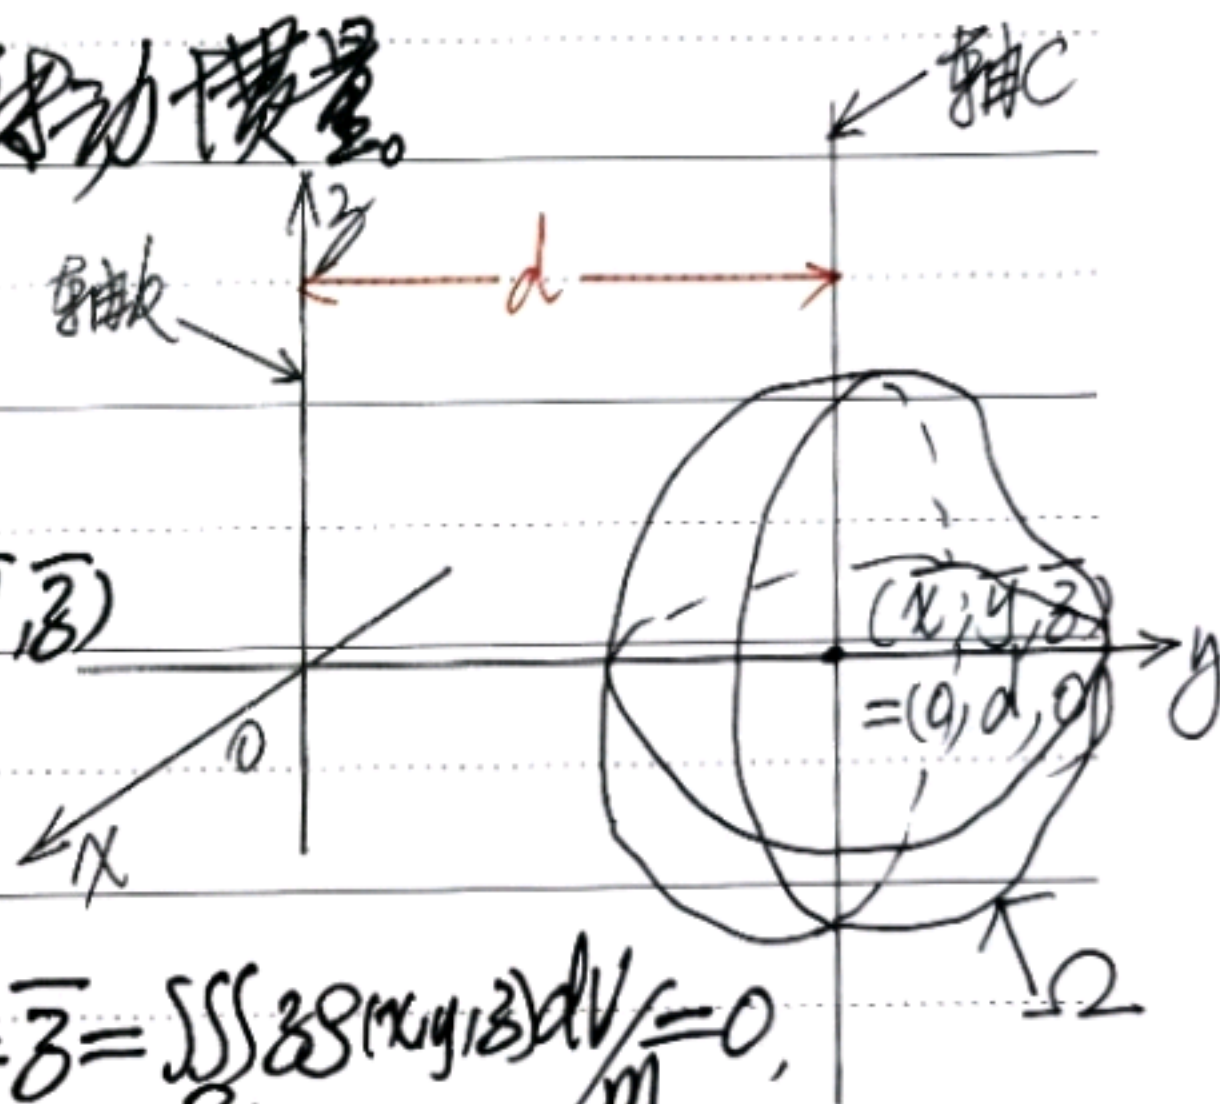 转动惯量。
轴C
z
d
轴k
,z̅)
(x̅,y̅,z̅)
=(0,d,0)
y
O
x
Ω
z̅=∭zρ(x,y,z)dV/m=0,
Ω